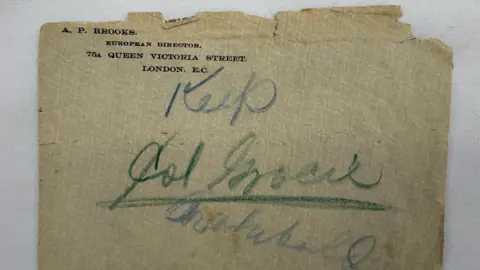 A. P. BROOKS.
EUROPEAN DIRECTOR.
75A QUEEN VICTORIA STREET.
LONDON. E.C.
Keep
Col Gracie
Archibald